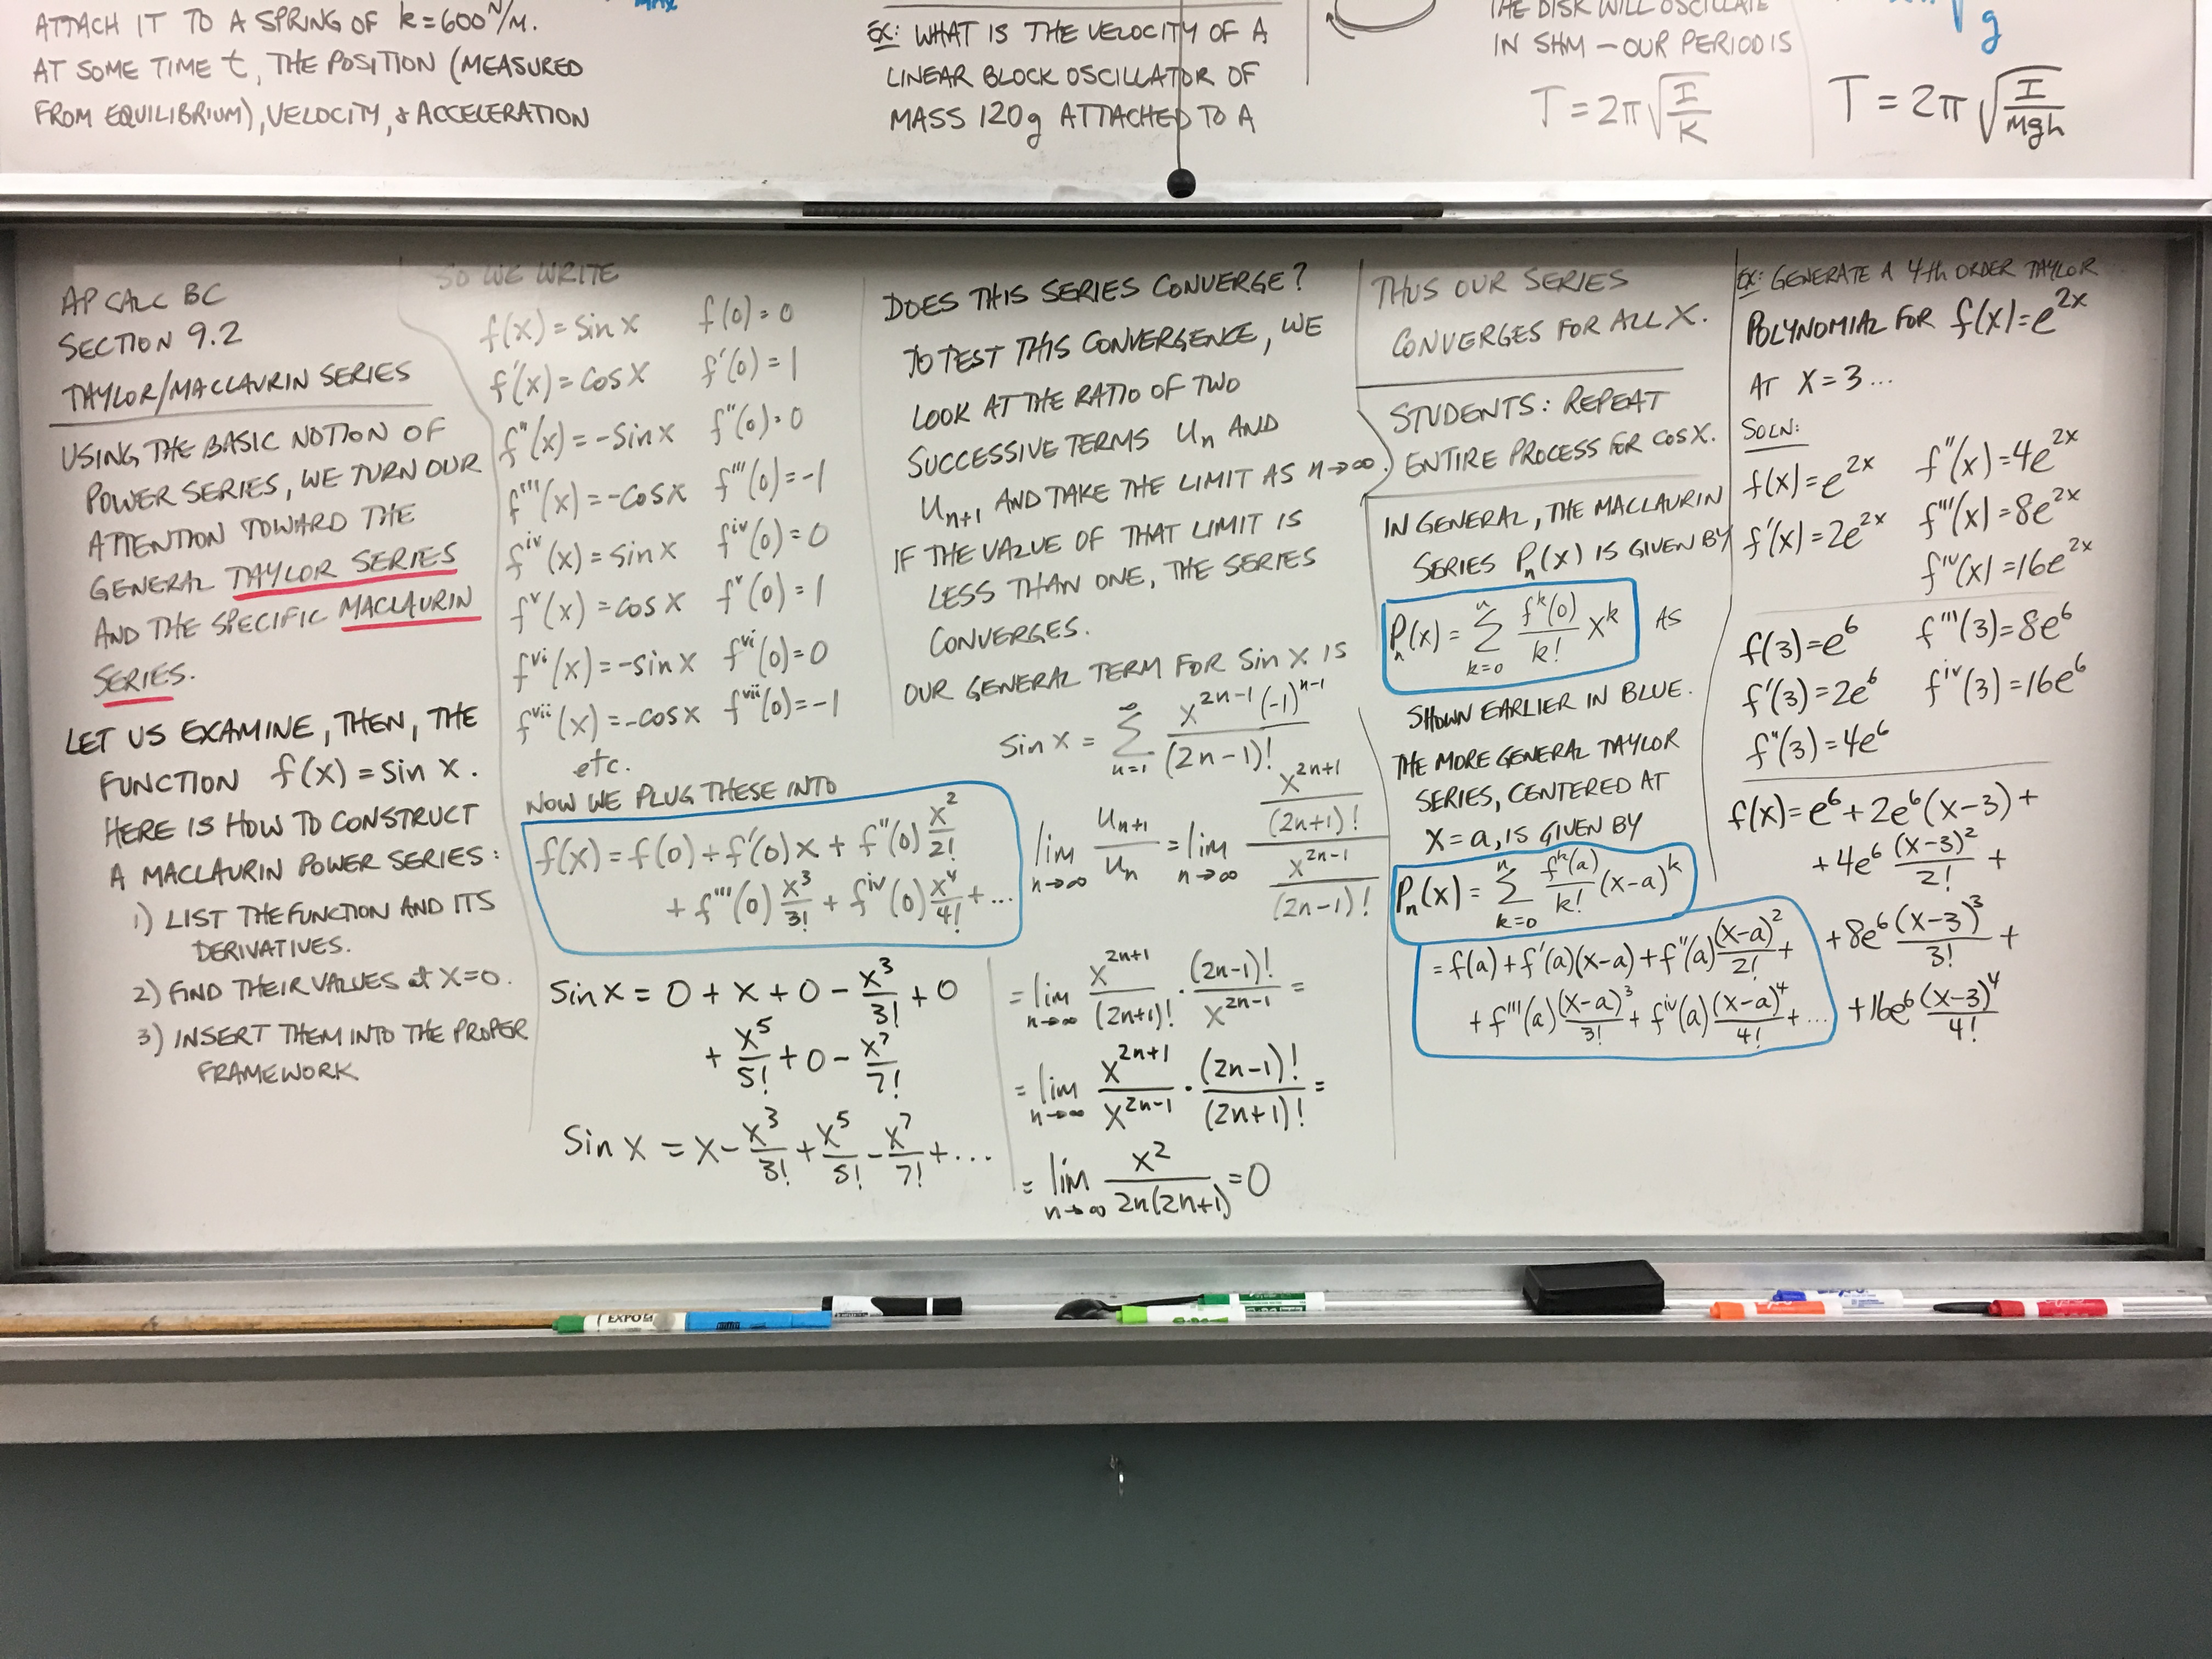 ATTACH IT TO A SPRING OF k=600 N/M.
AT SOME TIME t, THE POSITION (MEASURED
FROM EQUILIBRIUM), VELOCITY, & ACCELERATION
MAX
EX: WHAT IS THE VELOCITY OF A
LINEAR BLOCK OSCILLATOR OF
MASS 120g ATTACHED TO A
THE DISK WILL OSCILLATE
IN SHM – OUR PERIOD IS
T = 2π√(I/K)
g
T = 2π√(I/Mgh)
AP CALC BC
SECTION 9.2
TAYLOR/MACLAURIN SERIES
USING THE BASIC NOTION OF
POWER SERIES, WE TURN OUR
ATTENTION TOWARD THE
GENERAL TAYLOR SERIES
AND THE SPECIFIC MACLAURIN
SERIES.
LET US EXAMINE, THEN, THE
FUNCTION f(x) = sin x.
HERE IS HOW TO CONSTRUCT
A MACLAURIN POWER SERIES:
1) LIST THE FUNCTION AND ITS
DERIVATIVES.
2) FIND THEIR VALUES at X=0.
3) INSERT THEM INTO THE PROPER
FRAMEWORK
SO WE WRITE
f(x) = sin x f(0) = 0
f'(x) = cos x f'(0) = 1
f''(x) = -sin x f''(0) = 0
f'''(x) = -cos x f'''(0) = -1
f^iv(x) = sin x f^iv(0) = 0
f^v(x) = cos x f^v(0) = 1
f^vi(x) = -sin x f^vi(0) = 0
f^vii(x) = -cos x f^vii(0) = -1
etc.
NOW WE PLUG THESE INTO
f(x) = f(0) + f'(0) x + f''(0) x²/2!
+ f'''(0) x³/3! + f^iv(0) x⁴/4! + ...
sin x = 0 + x + 0 - x³/3! + 0
+ x⁵/5! + 0 - x⁷/7!
sin x = x - x³/3! + x⁵/5! - x⁷/7! + ...
DOES THIS SERIES CONVERGE?
TO TEST THIS CONVERGENCE, WE
LOOK AT THE RATIO OF TWO
SUCCESSIVE TERMS Uₙ AND
Uₙ₊₁ AND TAKE THE LIMIT AS n→∞.
IF THE VALUE OF THAT LIMIT IS
LESS THAN ONE, THE SERIES
CONVERGES.
OUR GENERAL TERM FOR sin x IS
sin x = Σ_{n=1}^{∞} x^{2n-1}(-1)^{n-1}/(2n-1)!
lim_{n→∞} Uₙ₊₁/Uₙ = lim_{n→∞} (x^{2n+1}/(2n+1)!)/(x^{2n-1}/(2n-1)!)
= lim_{n→∞} x^{2n+1}/(2n+1)! · (2n-1)!/x^{2n-1} =
= lim_{n→∞} x^{2n+1}/x^{2n-1} · (2n-1)!/(2n+1)! =
= lim_{n→∞} x²/2n(2n+1) = 0
THUS OUR SERIES
CONVERGES FOR ALL X.
STUDENTS: REPEAT
ENTIRE PROCESS FOR COS X.
IN GENERAL, THE MACLAURIN
SERIES Pₙ(x) IS GIVEN BY
Pₙ(x) = Σ_{k=0}^{n} f^k(0)/k! x^k AS
SHOWN EARLIER IN BLUE.
THE MORE GENERAL TAYLOR
SERIES, CENTERED AT
X = a, IS GIVEN BY
Pₙ(x) = Σ_{k=0}^{n} f^k(a)/k! (x-a)^k
= f(a) + f'(a)(x-a) + f''(a)(x-a)²/2! +
+ f'''(a)(x-a)³/3! + f^iv(a)(x-a)⁴/4! + ...
EX: GENERATE A 4th ORDER TAYLOR
POLYNOMIAL FOR f(x) = e^{2x}
AT X = 3 ...
SOLN:
f(x) = e^{2x} f''(x) = 4e^{2x}
f'(x) = 2e^{2x} f'''(x) = 8e^{2x}
f^iv(x) = 16e^{2x}
f(3) = e⁶ f'''(3) = 8e⁶
f'(3) = 2e⁶ f^iv(3) = 16e⁶
f''(3) = 4e⁶
f(x) = e⁶ + 2e⁶(x-3) +
+ 4e⁶ (x-3)²/2! +
+ 8e⁶ (x-3)³/3! +
+ 16e⁶ (x-3)⁴/4!
EXPO